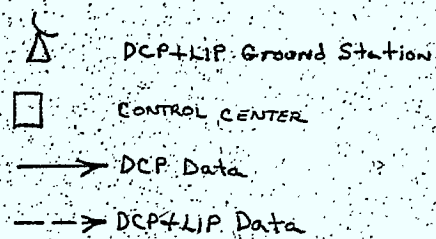 DCP+LIP Ground Station
CONTROL CENTER
DCP Data
DCP+LIP Data